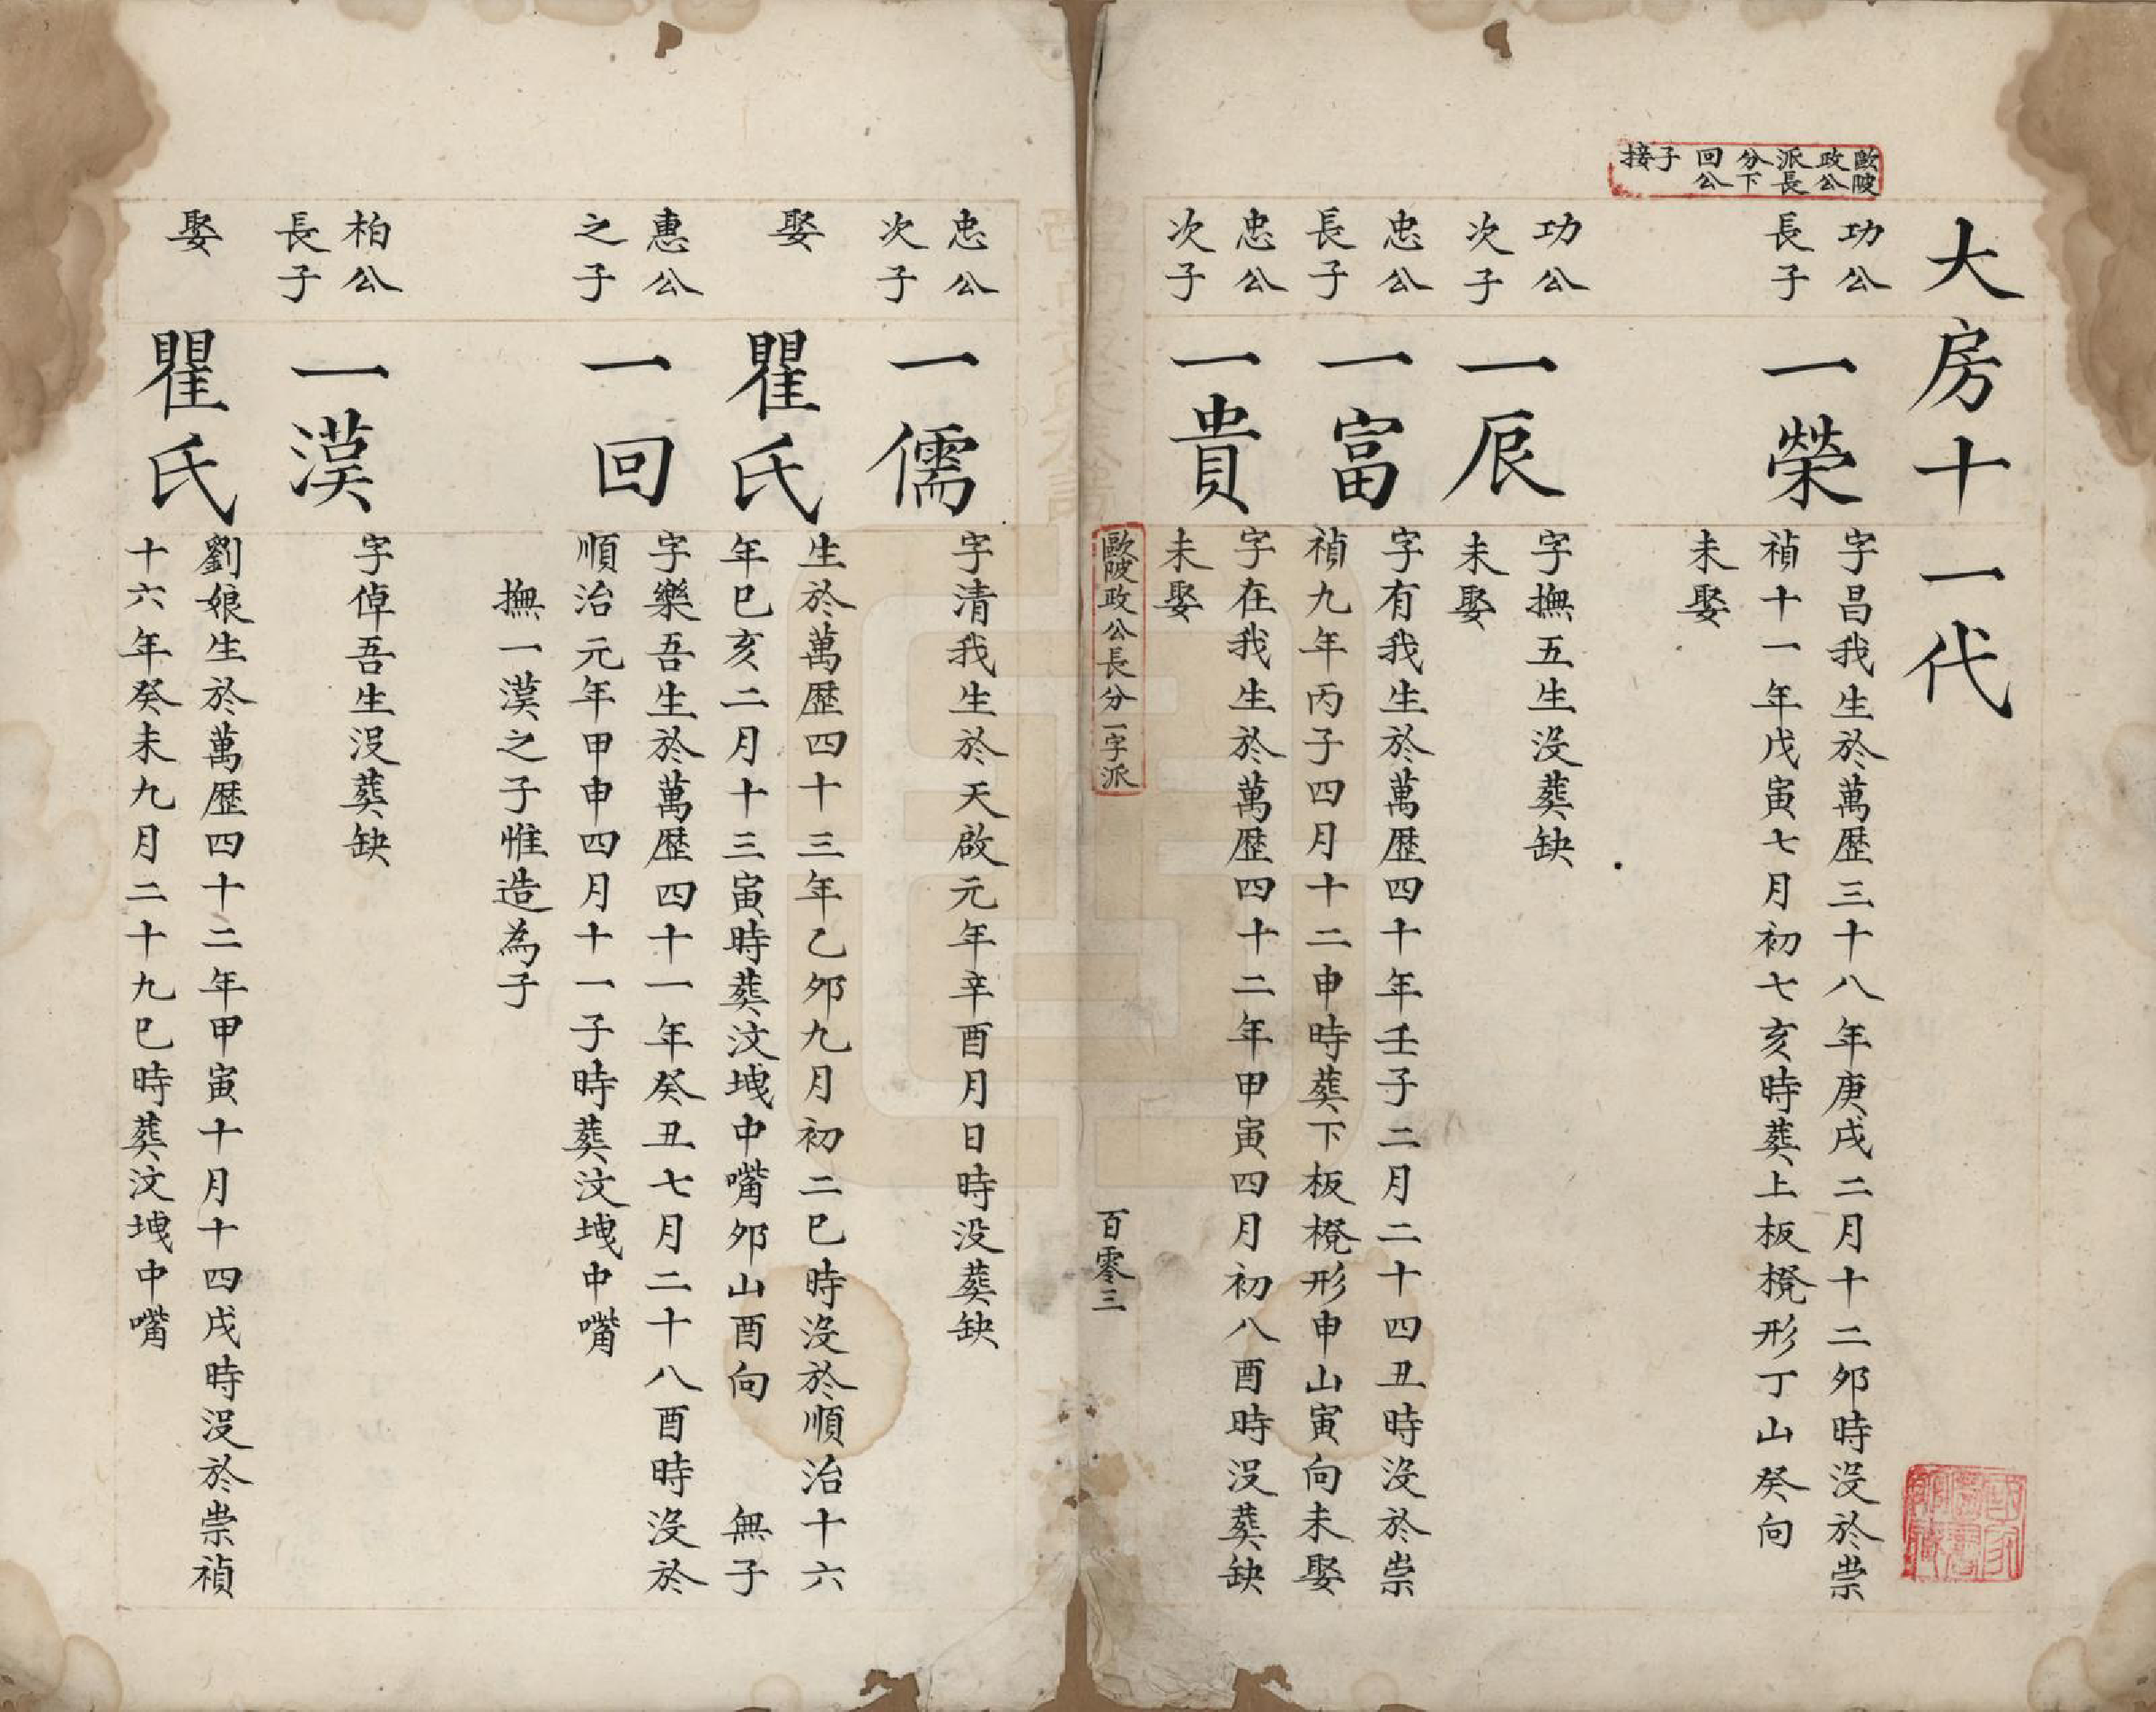 大房十一代
歐陂
政公
派長
分下
回公
子
接
功公
長子
一榮
字昌我生於萬歷三十八年庚戌二月十二夘時没於崇
禎十一年戊寅七月初七亥時葬上板櫈形丁山癸向
未娶
功公
次子
一辰
字撫五生没葬缺
未娶
忠公
長子
一富
字有我生於萬歷四十年壬子二月二十四丑時没於崇
禎九年丙子四月十二申時葬下板櫈形申山寅向未娶
忠公
次子
一貴
字在我生於萬歷四十二年甲寅四月初八酉時没葬缺
未娶
歐陂政公長分一字派
百零三
忠公
次子
一儒
字清我生於天啟元年辛酉月日時没葬缺
娶
瞿氏
生於萬歷四十三年乙夘九月初二巳時没於順治十六
年巳亥二月十三寅時葬汶堍中嘴夘山酉向 無子
惠公
之子
一回
字樂吾生於萬歷四十一年癸丑七月二十八酉時没於
順治元年甲申四月十一子時葬汶堍中嘴
撫一漢之子惟造為子
柏公
長子
一漢
字倬吾生没葬缺
娶
瞿氏
劉娘生於萬歷四十二年甲寅十月十四戌時没於崇禎
十六年癸未九月二十九巳時葬汶堍中嘴